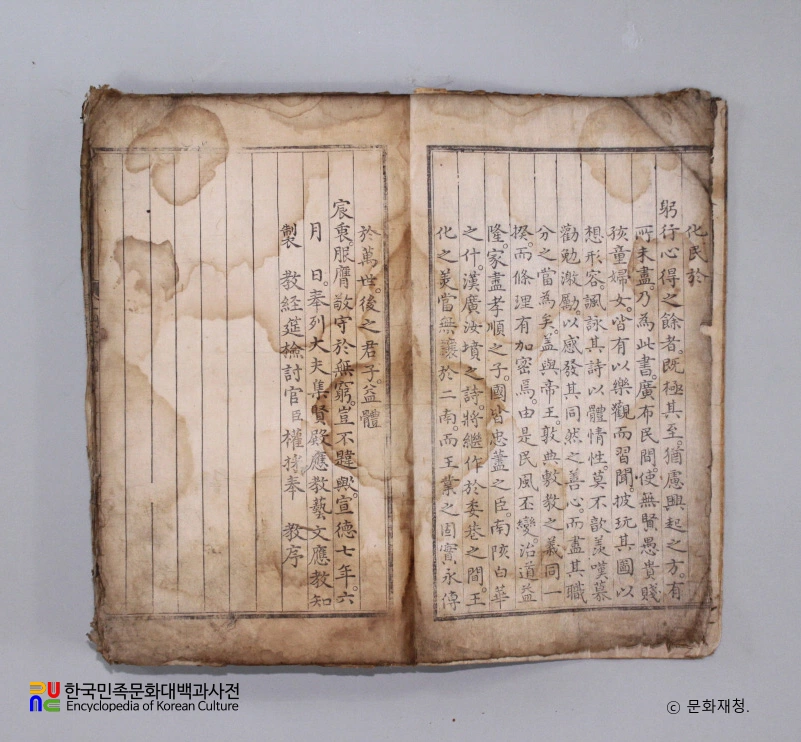 化民於
躬行心得之餘者。既極其至。猶慮興起之方。有
所未盡。乃爲此書。廣布民間。使無賢愚貴賤
孩童婦女。皆有以樂觀而習聞。披玩其圖。以
想形容。諷詠其詩。以體情性。莫不歆羨嘆慕
勸勉激勵。以感發其同然之善心。而盡其職
分之當爲矣。盖與帝王。敦典敷教之義同一
揆。而條理有加密焉。由是民風丕變。治道益
隆。家盡孝順之子。國皆忠藎之臣。南陔白華
之什。漢廣汝墳之詩。將繼作於委巷之間。王
化之美當無讓於二南。而王業之固實永傳
於萬世。後之君子。益體
宸衷。服膺敬守於無窮。豈不韙歟。宣德七年。六
月 日。奉列大夫集賢殿應教藝文應教知
製 教經筵檢討官臣權採奉 教序
한국민족문화대백과사전
Encyclopedia of Korean Culture
ⓒ 문화재청.